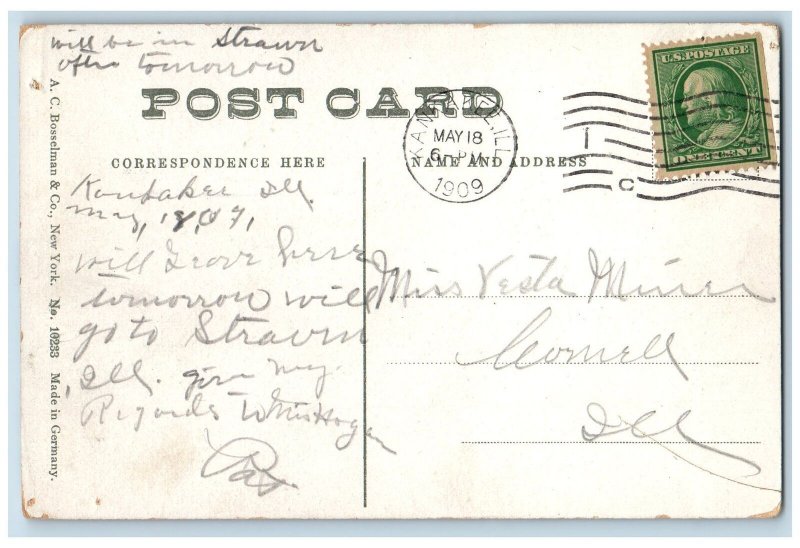 will be in Strawn
after tomorrow
POST CARD
CORRESPONDENCE HERE
NAME AND ADDRESS
KANKAKEE, ILL.
MAY 18
6 PM
1909
1
C
U.S. POSTAGE
ONE CENT
A. C. Bosselman & Co., New York. No. 10233 Made in Germany.
Kankakee Ill.
May, 18, 09,
will Leave here
tomorrow will
go to Strawn
Ill. give my
Regards to Miss Hogan
Miss Vesta Miner
Cornell
Ill